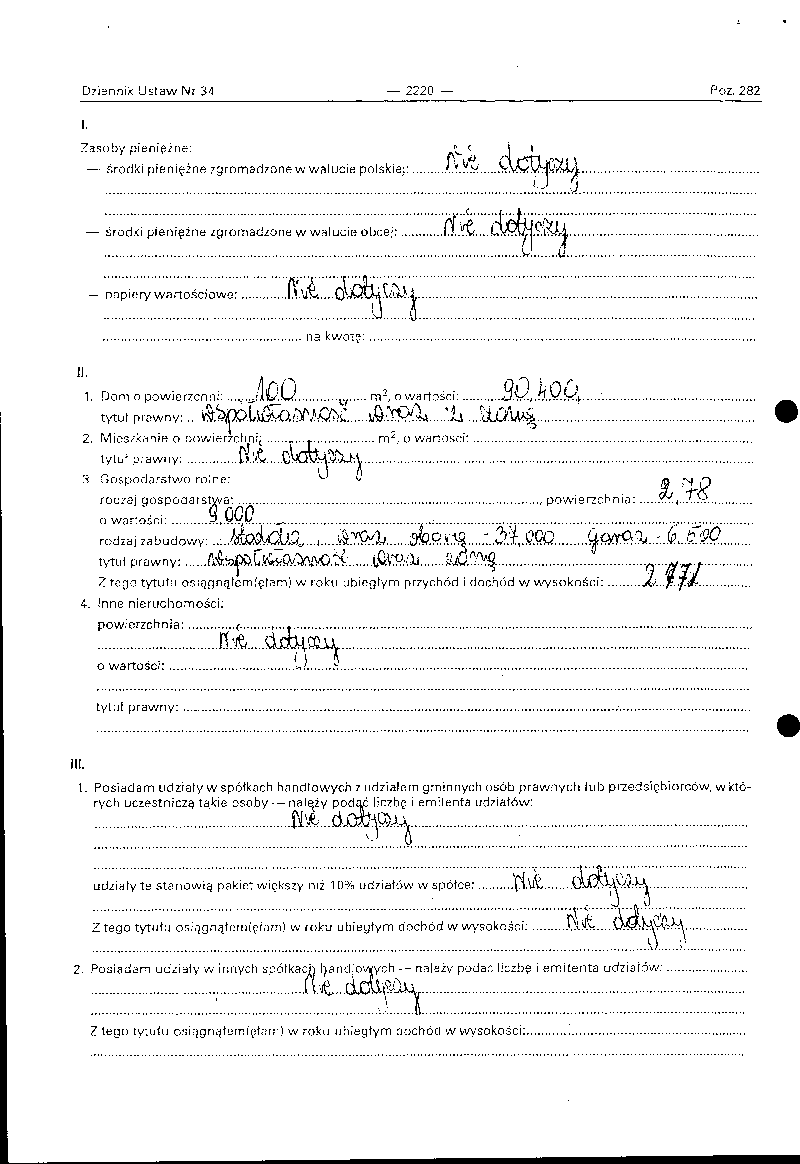 Dziennik Ustaw Nr 34 — 2220 — Poz. 282
I.
Zasoby pieniężne:
— środki pieniężne zgromadzone w walucie polskiej: Nie dotyczy
— środki pieniężne zgromadzone w walucie obcej: Nie dotyczy
— papiery wartościowe: Nie dotyczy
na kwotę:
II.
1. Dom o powierzchni: 100 m², o wartości: 90.400,
tytuł prawny: współwłasność wraz z żoną
2. Mieszkanie o powierzchni: m², o wartości:
tytuł prawny: Nie dotyczy
3. Gospodarstwo rolne:
rodzaj gospodarstwa: , powierzchnia: 2,78
o wartości: 9.000
rodzaj zabudowy: stodoła, wraz oborą - 37.000 garaż - 6.500
tytuł prawny: współwłasność wraz żoną
Z tego tytułu osiągnąłem(ęłam) w roku ubiegłym przychód i dochód w wysokości: 2 771
4. Inne nieruchomości:
powierzchnia:
Nie dotyczy
o wartości:
tytuł prawny:
III.
1. Posiadam udziały w spółkach handlowych z udziałem gminnych osób prawnych lub przedsiębiorców, w któ-
rych uczestniczą takie osoby — należy podać liczbę i emitenta udziałów:
Nie dotyczy
udziały te stanowią pakiet większy niż 10% udziałów w spółce: Nie dotyczy
Z tego tytułu osiągnąłem(ęłam) w roku ubiegłym dochód w wysokości: Nie dotyczy
2. Posiadam udziały w innych spółkach handlowych — należy podać liczbę i emitenta udziałów:
Nie dotyczy
Z tego tytułu osiągnąłem(ęłam) w roku ubiegłym dochód w wysokości: